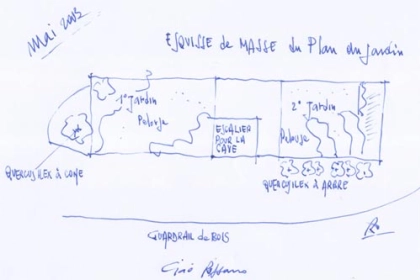 Mai 2013
ESQUISSE de MASSE du Plan du jardin
1° jardin
Pelouse
2° jardin
Pelouse
ESCALIER
POUR LA
CAVE
QUERCUS ILEX à CONE
QUERCUS ILEX à ARBRE
GUARDRAIL de BOIS
Ciao